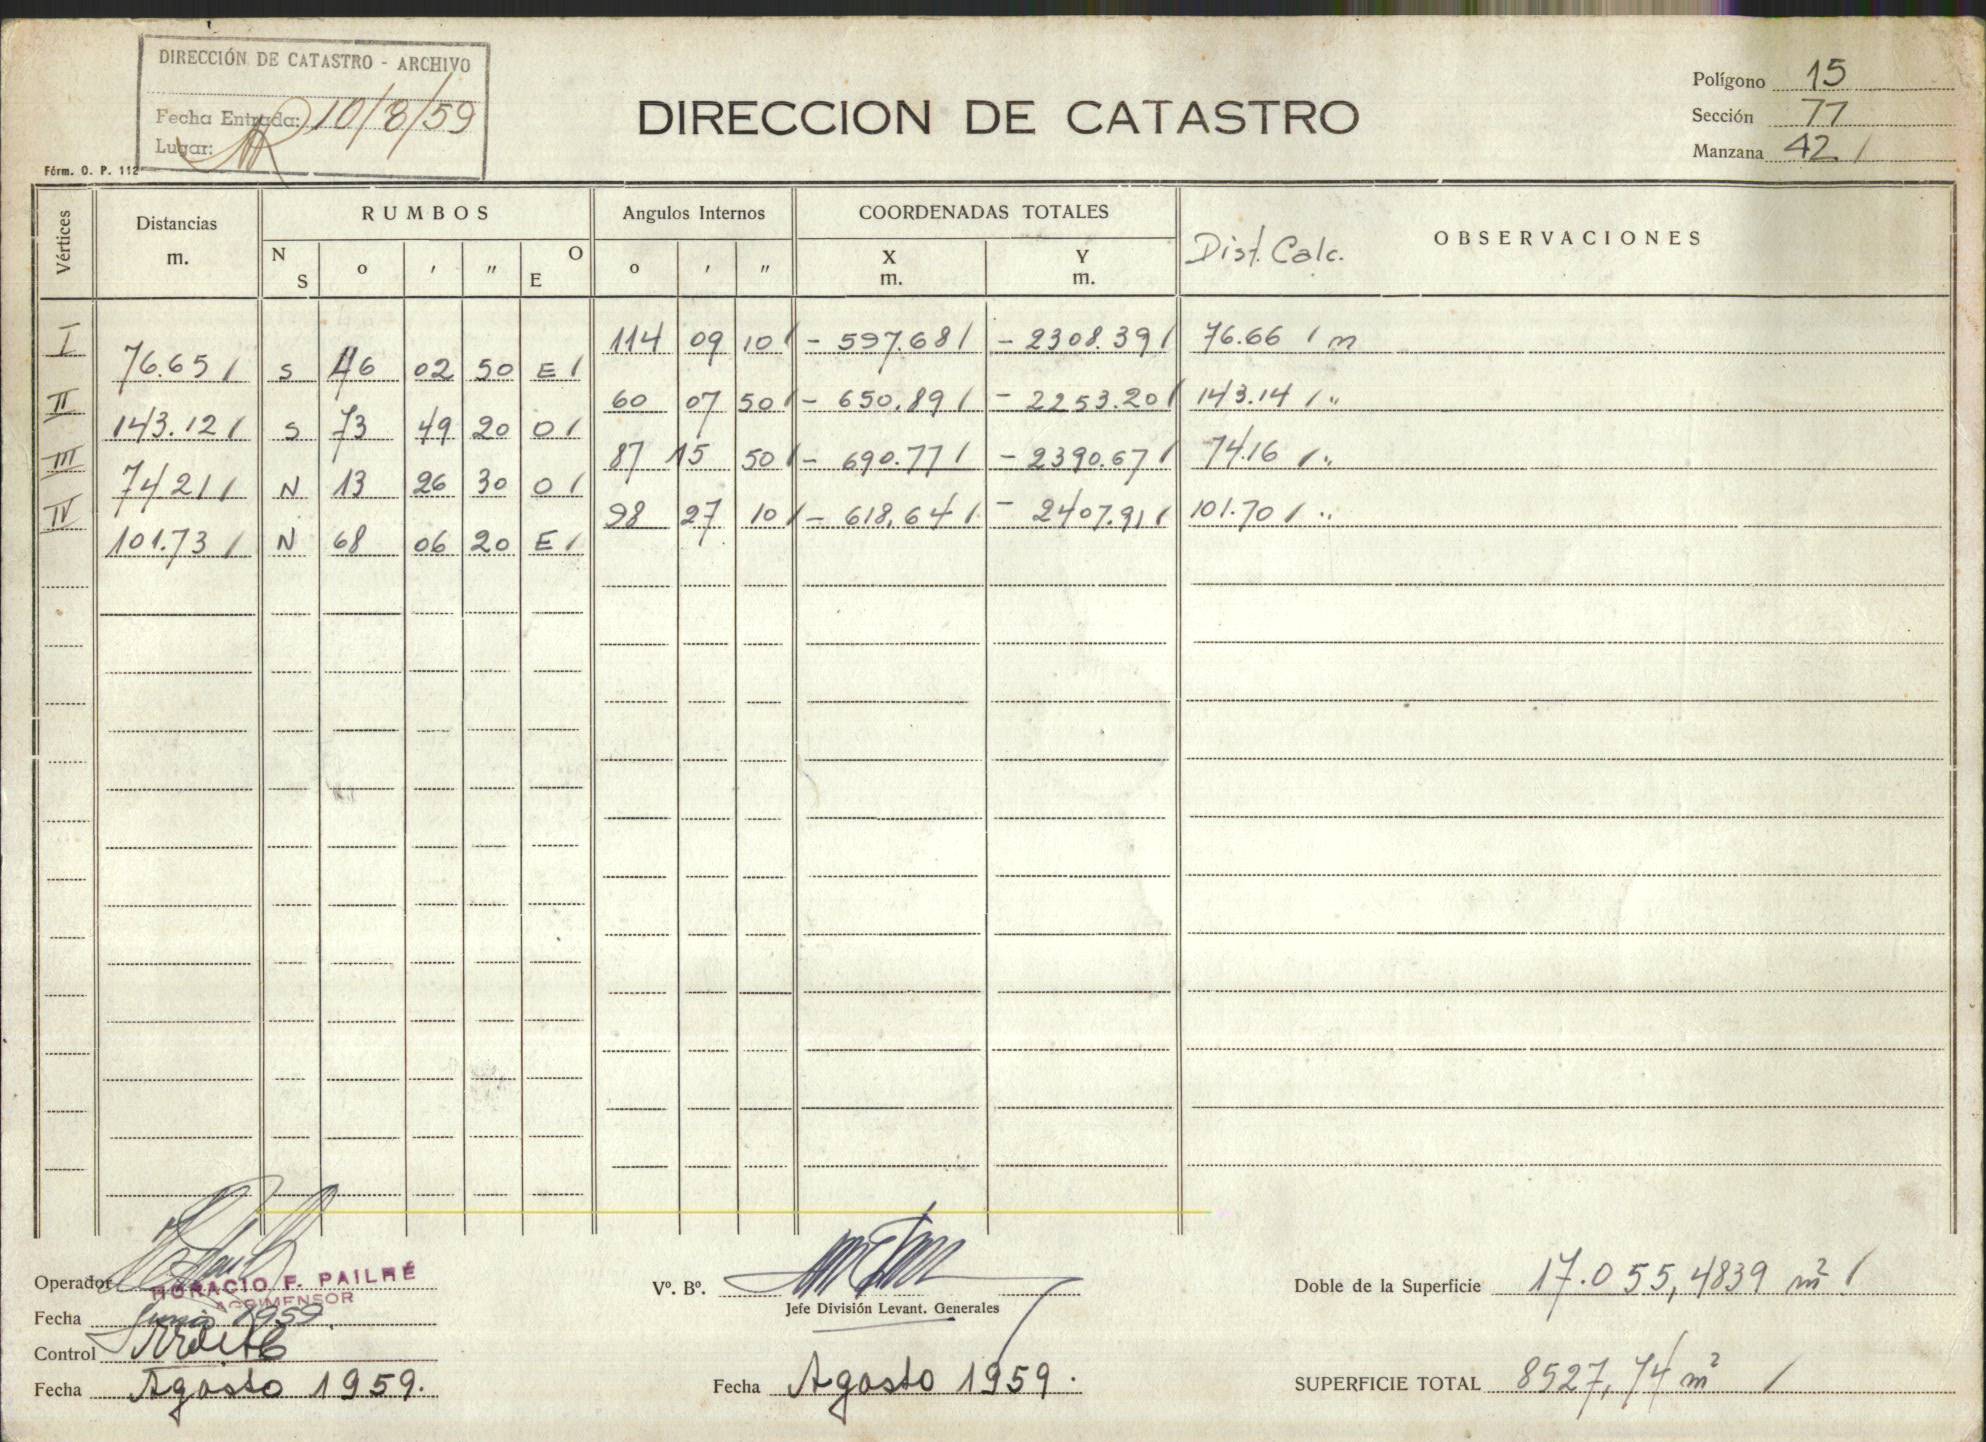 DIRECCIÓN DE CATASTRO - ARCHIVO
Fecha Entrada: 10/8/59
Lugar:
Fórm. O. P. 112
DIRECCION DE CATASTRO
Polígono 15
Sección 77
Manzana 42 /
Vértices Distancias m. RUMBOS Angulos Internos COORDENADAS TOTALES Dist. Calc. OBSERVACIONES
N S o ' " O E o ' " X m. Y m.
I 114 09 10 / - 597.68 / - 2308.39 / 76.66 / m
76.65 / S 46 02 50 E /
II 60 07 50 / - 650.89 / - 2253.20 / 143.14 / "
143.12 / S 73 49 20 O /
III 87 15 50 / - 690.77 / - 2390.67 / 74.16 / "
74.21 / N 13 26 30 O /
IV 98 27 10 / - 618,64 / - 2407.91 / 101.70 / "
101.73 / N 68 06 20 E /
Operador HORACIO F. PAILHÉ
AGRIMENSOR
Fecha Junio 1959.
Control
Fecha Agosto 1959.
Vº. Bº.
Jefe División Levant. Generales
Fecha Agosto 1959.
Doble de la Superficie 17.055,4839 m² /
SUPERFICIE TOTAL 8527,74 m² /